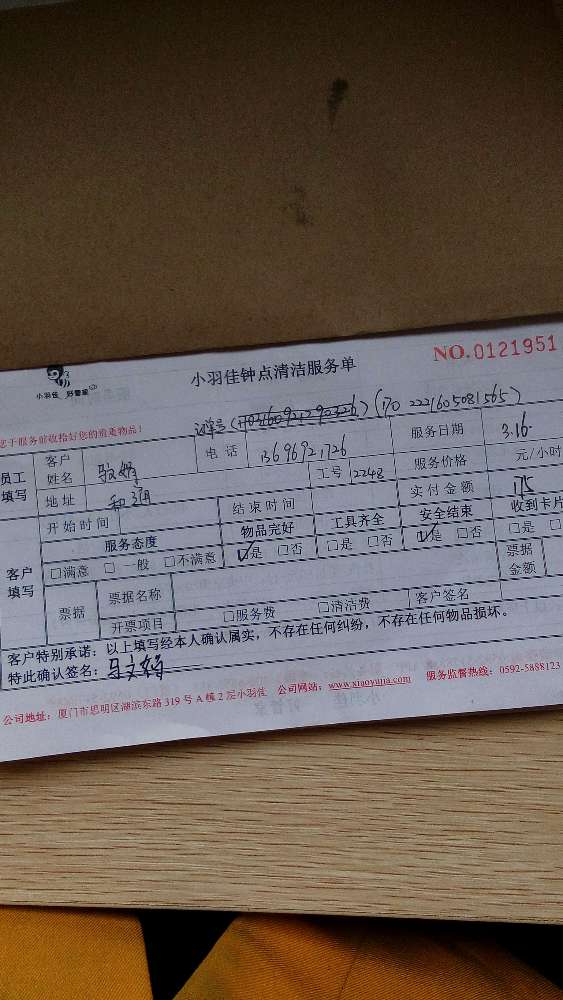 小羽佳 好管家
小羽佳钟点清洁服务单
NO.0121951
您于服务前收拾好您的贵重物品!
(170 2221605081565)
员工填写 客户姓名 电话 13696921726 服务日期 3.16
地址 工号 12248 服务价格 元/小时
开始时间 结束时间 实付金额 175
客户填写 服务态度 物品完好 工具齐全 安全结束 收到卡片
□满意 □一般 □不满意 ☑是 □否 □是 □否 ☑是 □否 □是 □
票据 票据名称 票据金额
开票项目 □服务费 □清洁费 客户签名
客户特别承诺:以上填写经本人确认属实,不存在任何纠纷,不存在任何物品损坏。
特此确认签名:马文娟
公司地址:厦门市思明区湖滨东路319号A幢2层小羽佳 公司网站:www.xiaoyujia.com 服务监督热线:0592-5888123